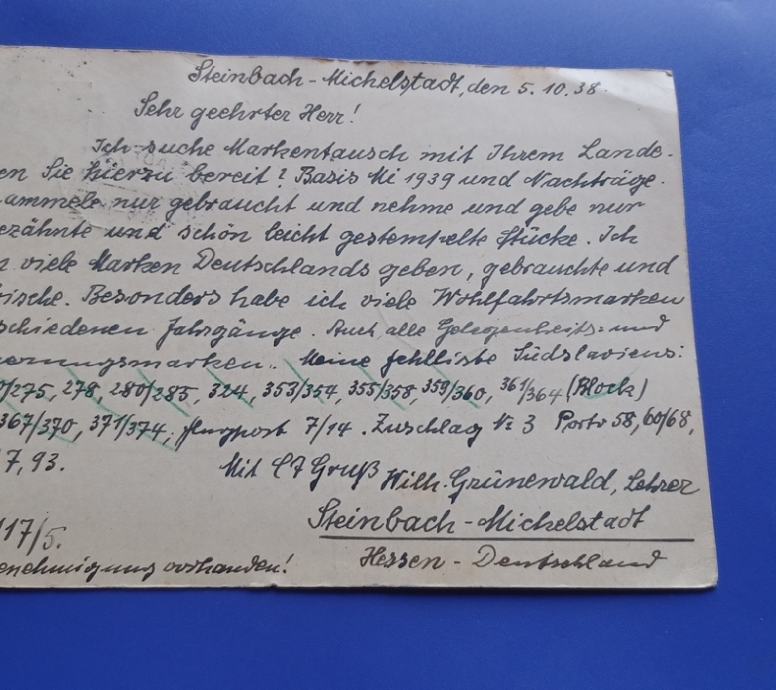 Steinbach-Michelstadt, den 5.10.38.
Sehr geehrter Herr!
Ich suche Markentausch mit Ihrem Lande.
en Sie hierzu bereit? Basis Mi 1939 und Nachträge.
ammele nur gebraucht und nehme und gebe nur
ezähnte und schön leicht gestempelte Stücke. Ich
n viele Marken Deutschlands geben, gebrauchte und
rische. Besonders habe ich viele Wohlfahrtsmarken
schiedenen Jahrgänge. Auch alle Gelegenheits- und
erungsmarken. Meine Fehlliste Südslaviens:
/275, 278, 280/285, 324, 353/354, 355/358, 359/360, 361/364 (Block)
367/370, 371/374, Flugpost 7/14. Zuschlag № 3 Porto 58, 60/68,
7, 93.
Mit Gruß Wilh. Grünewald, Lehrer
Steinbach-Michelstadt
117/5.
enehmigung vorhanden!
Hessen - Deutschland